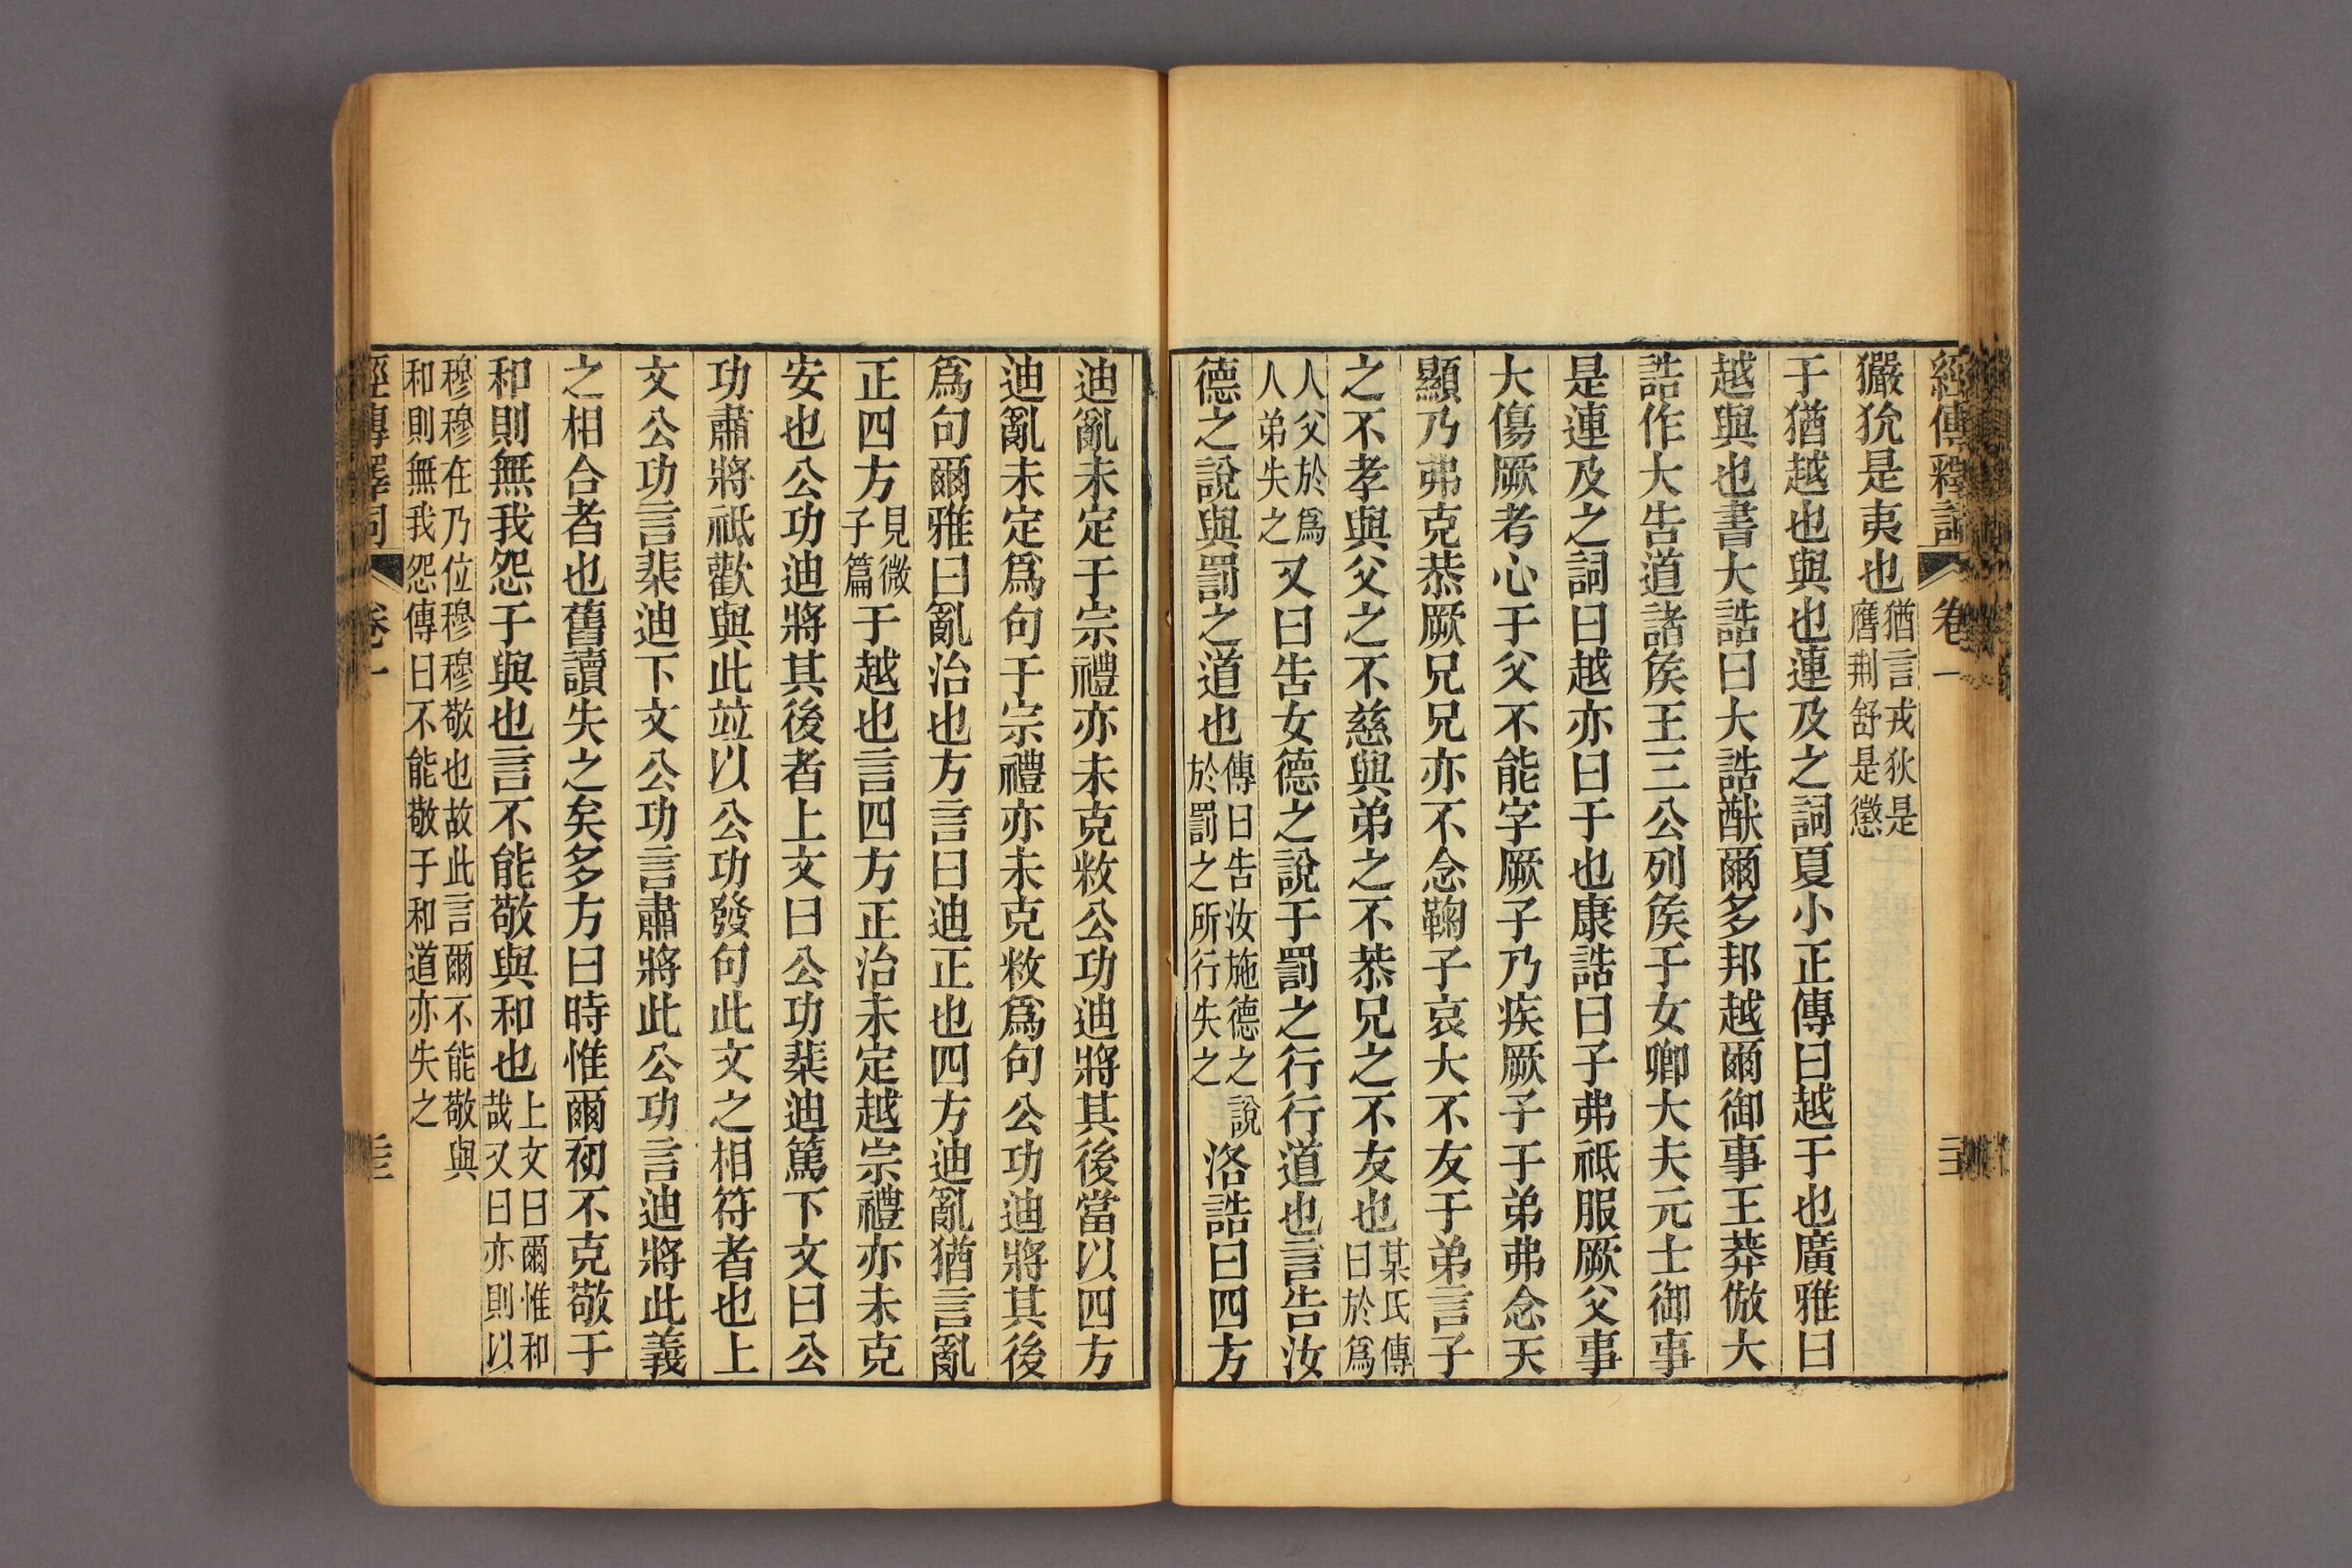 經傳釋詞 卷一 三
玁狁是夷也猶言戎狄是膺荆舒是懲
于猶越也與也連及之詞夏小正傳曰越于也廣雅曰
越與也書大誥曰大誥猷爾多邦越爾御事王莽倣大
誥作大告道諸矦王三公列矦于女卿大夫元士御事
是連及之詞曰越亦曰于也康誥曰子弗祗服厥父事
大傷厥考心于父不能字厥子乃疾厥子于弟弗念天
顯乃弗克恭厥兄兄亦不念鞠子哀大不友于弟言子
之不孝與父之不慈與弟之不恭兄之不友也某氏傳曰於爲
人父於爲人弟失之又曰告女德之說于罰之行行道也言告汝
德之說與罰之道也傳曰告汝施德之說於罰之所行失之洛誥曰四方
迪亂未定于宗禮亦未克敉公功迪將其後當以四方
迪亂未定爲句于宗禮亦未克敉爲句公功迪將其後
爲句爾雅曰亂治也方言曰迪正也四方迪亂猶言亂
正四方見微子篇于越也言四方正治未定越宗禮亦未克
安也公功迪將其後者上文曰公功棐迪篤下文曰公
功肅將祗歡與此竝以公功發句此文之相符者也上
文公功言棐迪下文公功言肅將此公功言迪將此義
之相合者也舊讀失之矣多方曰時惟爾初不克敬于
和則無我怨于與也言不能敬與和也上文曰爾惟和哉又曰亦則以
穆穆在乃位穆穆敬也故此言爾不能敬與和則無我怨傳曰不能敬于和道亦失之
經傳釋詞 卷一